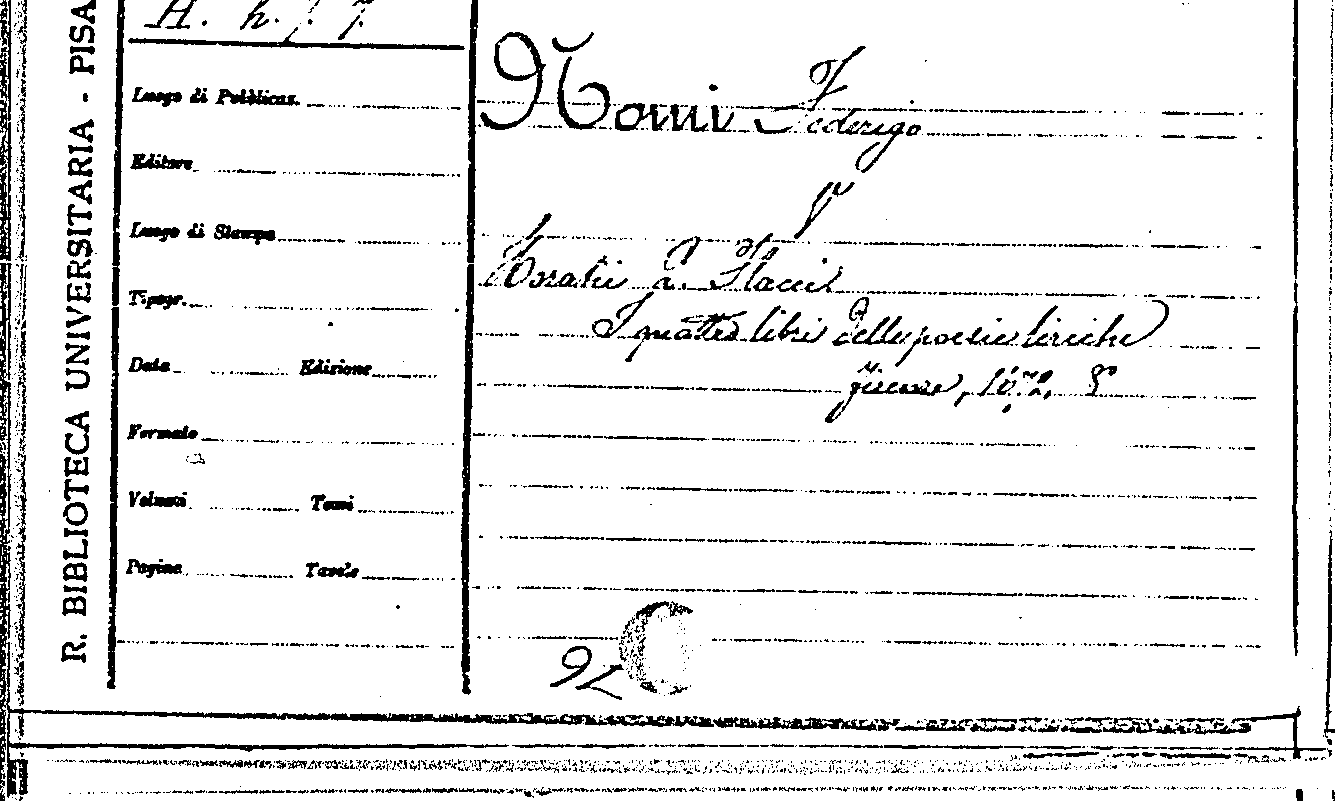 R. BIBLIOTECA UNIVERSITARIA - PISA
H. h. 7. 7
Luogo di Pubblicaz.
Editore
Luogo di Stampa
Tipogr.
Data Edizione
Formato
Volumi Tomi
Pagine Tavole
Nomi Federigo
V
Horatii Q. Flacci
I quattro libri delle poesie liriche
Firenze, 1672, 8°